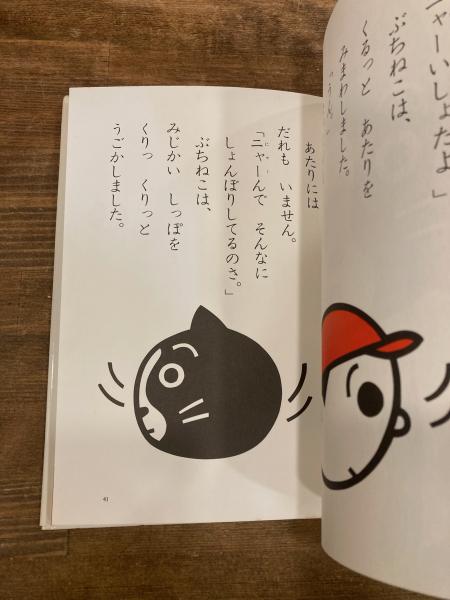 ニャーいしょだよ」
ぶちねこは、
くるっと あたりを
みまわしました。
あたりには
だれも いません。
「ニャーんで そんなに
しょんぼりしてるのさ。」
ぶちねこは、
みじかい しっぽを
くりっ くりっと
うごかしました。
41